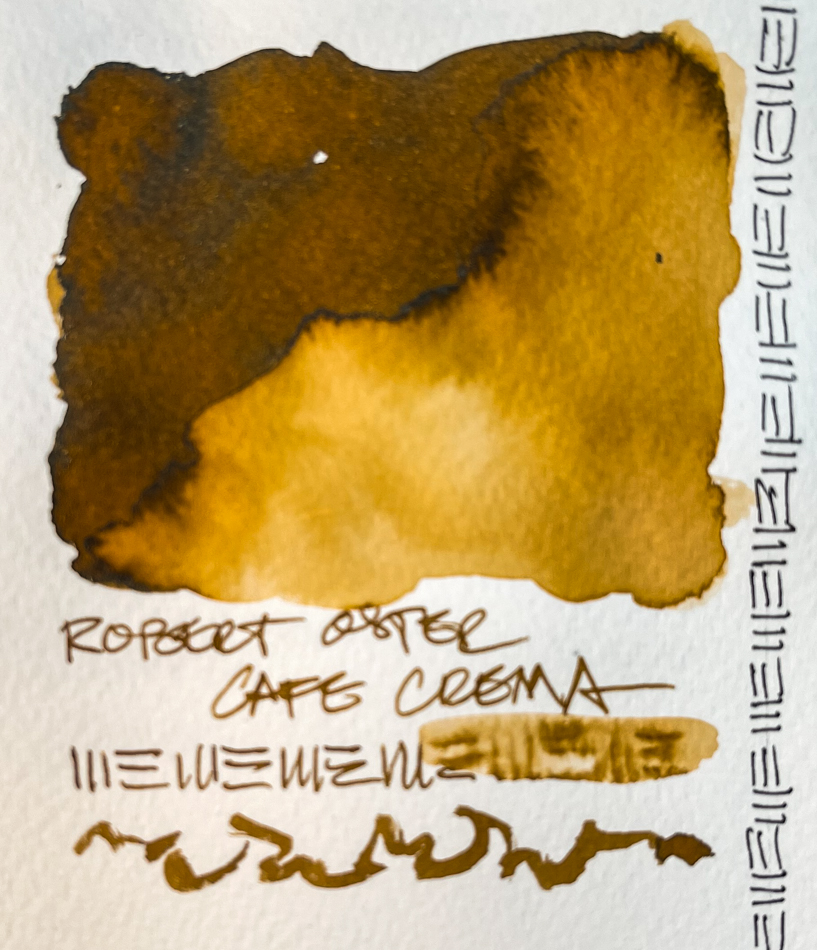 ROBERT OSTER
CAFE CREMA